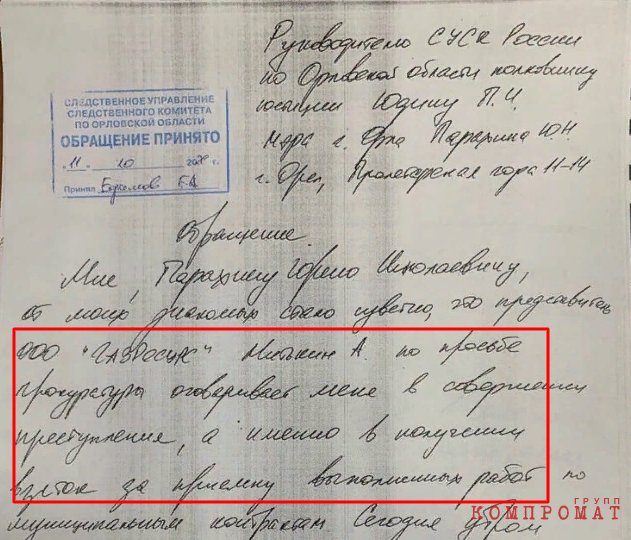 Руководителю СУСК России
по Орловской области полковнику
юстиции Юдину П.Ч.
Мэра г. Орла Парахина Ю.Н.
г. Орел, Пролетарская гора 11-14
СЛЕДСТВЕННОЕ УПРАВЛЕНИЕ
СЛЕДСТВЕННОГО КОМИТЕТА
ПО ОРЛОВСКОЙ ОБЛАСТИ
ОБРАЩЕНИЕ ПРИНЯТО
"11" 10 2020 г.
Принял
Обращение.
Мне, Парахину Юрию Николаевичу,
от моих знакомых стало известно, что представитель
ООО "ГАЗРесурс" Никишин А. по просьбе
прокуратуры оговаривает меня в совершении
преступления, а именно в получении
взяток за приемку выполненных работ по
муниципальным контрактам Сегодня утром
ГРУПП
КОМПРОМАТ